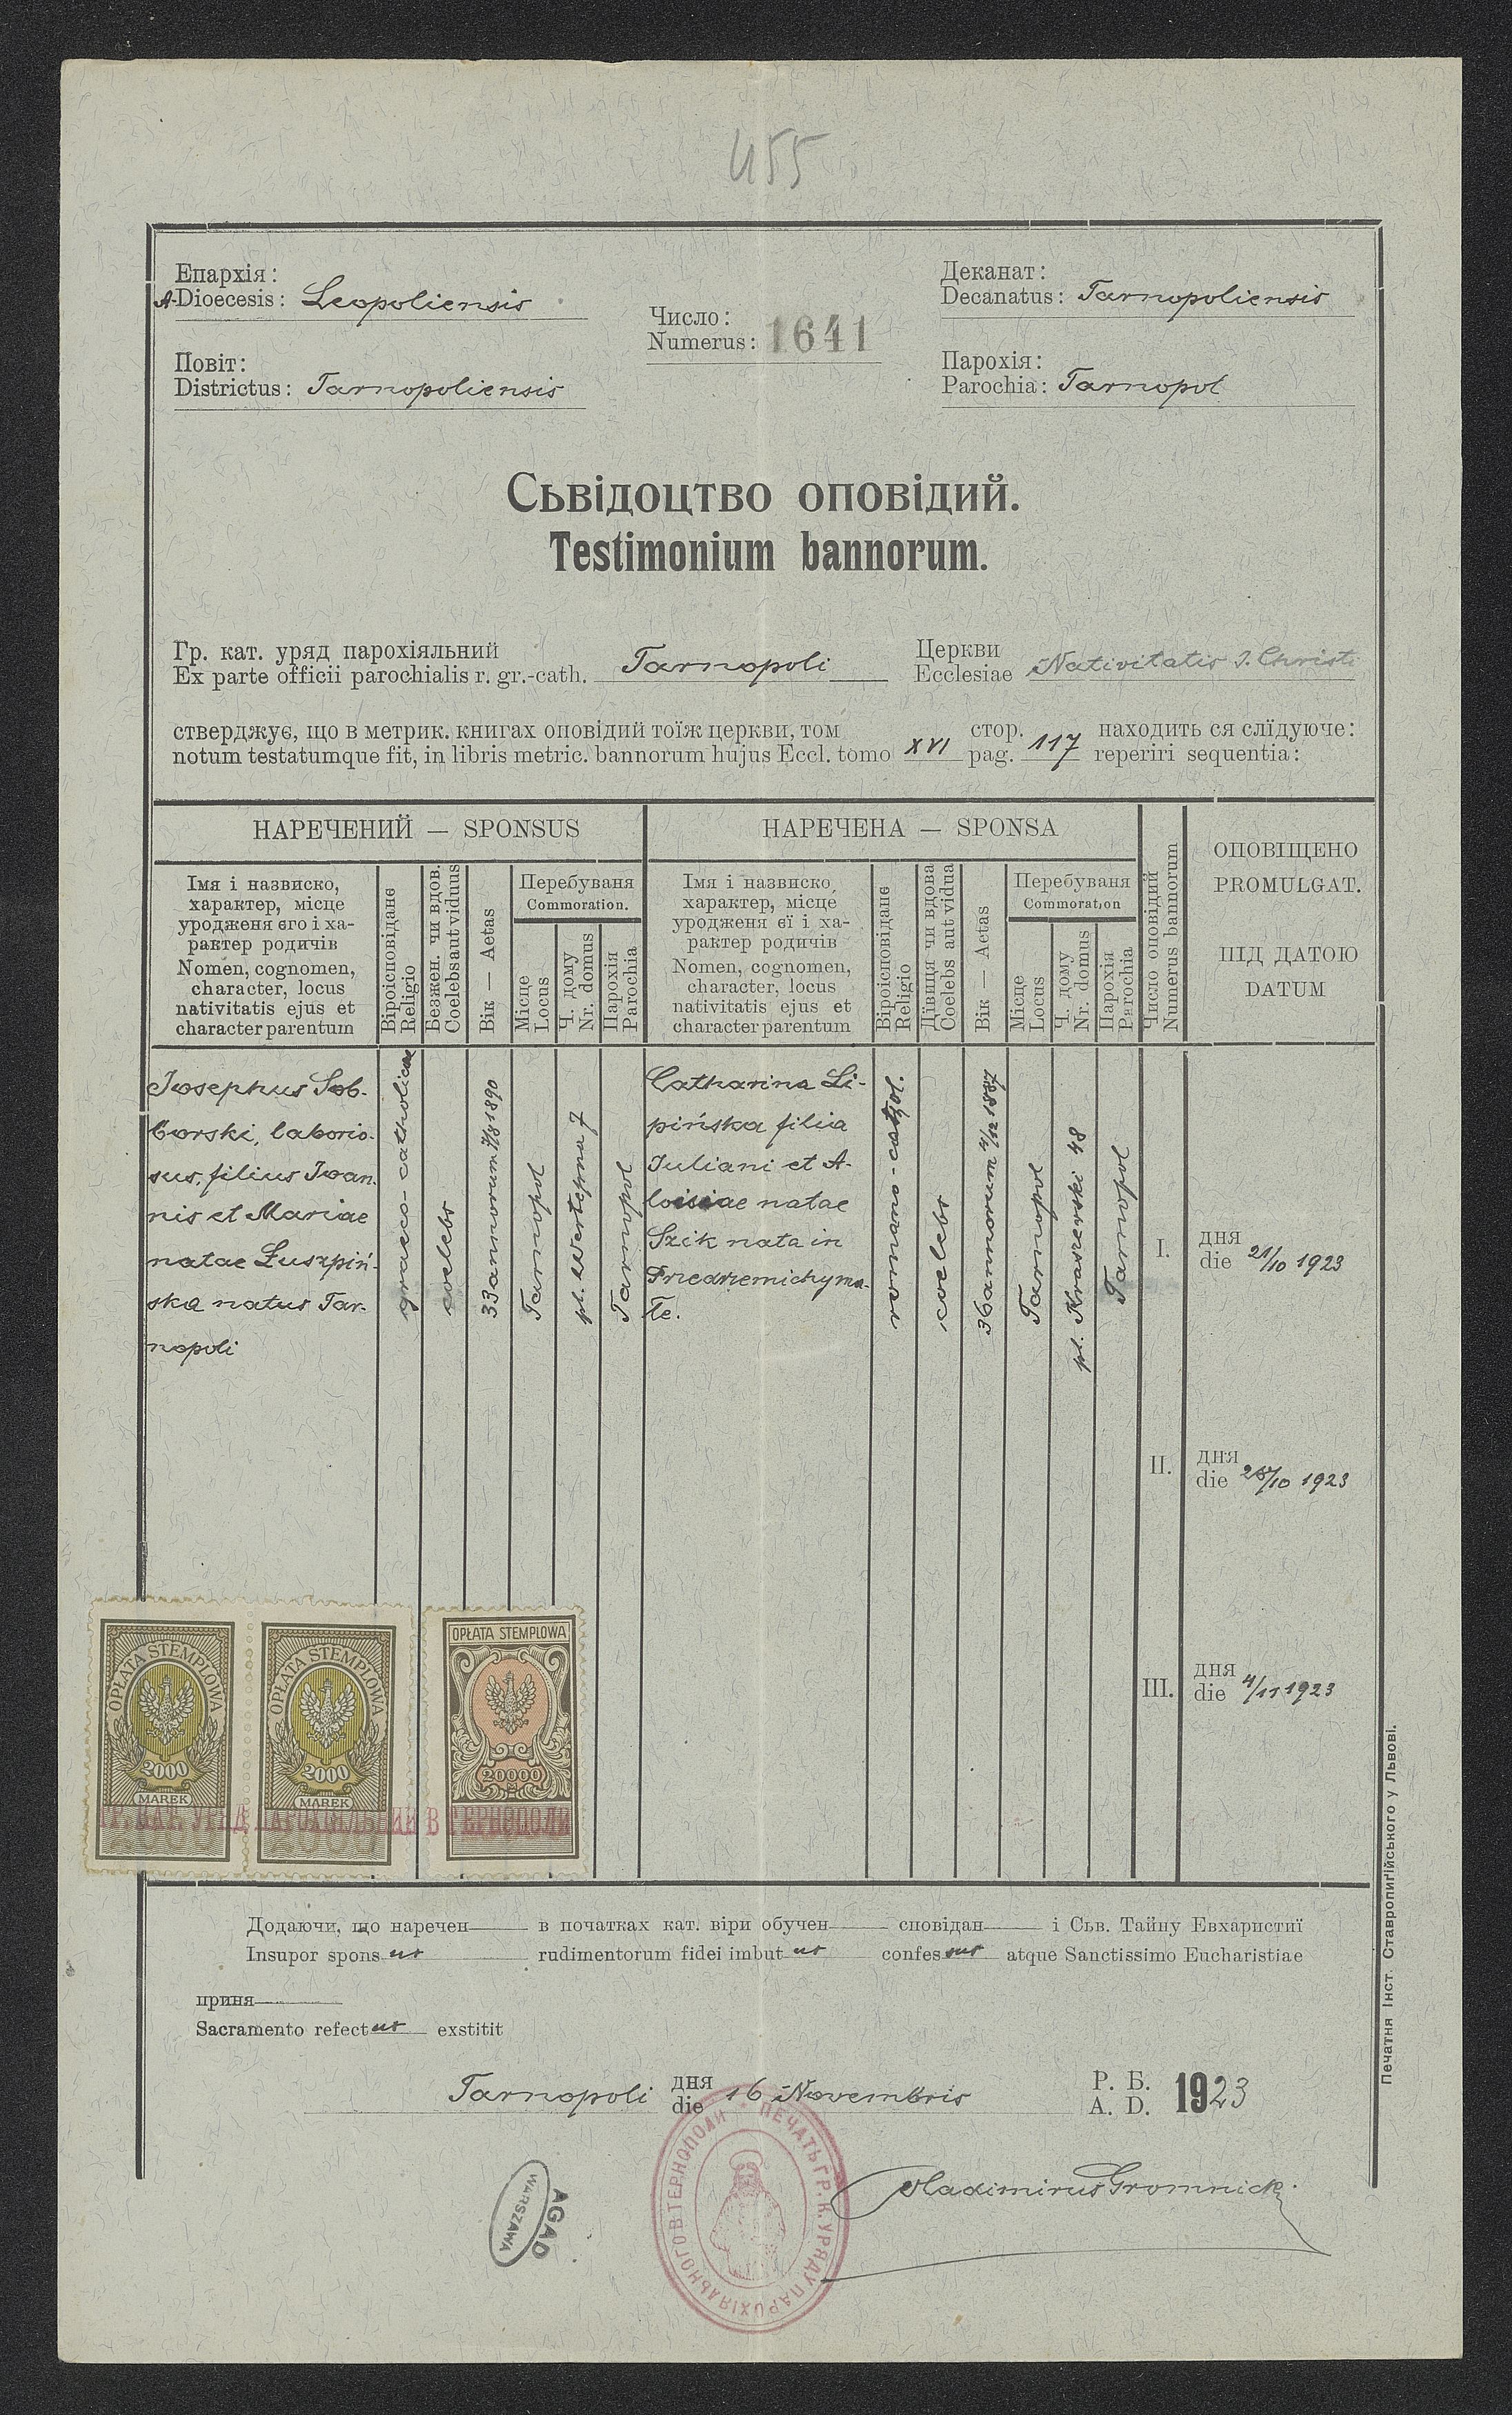 455
Епархія:
A-Dioecesis: Leopoliensis
Повіт:
Districtus: Tarnopoliensis
Число:
Numerus: 1641
Деканат:
Decanatus: Tarnopoliensis
Парохія:
Parochia: Tarnopol
Сьвідоцтво оповідий.
Testimonium bannorum.
Гр. кат. уряд парохіяльний
Ex parte officii parochialis r. gr.-cath. Tarnopoli
Церкви
Ecclesiae Nativitatis J. Christi
стверджує, що в метрик. книгах оповідий тоїж церкви, том стор. находить ся слїдуюче:
notum testatumque fit, in libris metric. bannorum hujus Eccl. tomo XVI pag. 117 reperiri sequentia:
НАРЕЧЕНИЙ — SPONSUS
НАРЕЧЕНА — SPONSA
Імя і назвиско,
характер, місце
уродженя єго і ха-
рактер родичів
Nomen, cognomen,
character, locus
nativitatis ejus et
character parentum
Віроісповіданє
Religio
Безжен. чи вдов.
Coelebs aut viduus
Вік — Aetas
Перебуваня
Commoration.
Місце
Locus
Ч. дому
Nr. domus
Парохія
Parochia
Імя і назвиско,
характер, місце
уродженя єї і ха-
рактер родичів
Nomen, cognomen,
character, locus
nativitatis ejus et
character parentum
Віроісповіданє
Religio
Дївиця чи вдова
Coelebs aut vidua
Вік — Aetas
Перебуваня
Commoration
Місце
Locus
Ч. дому
Nr. domus
Парохія
Parochia
Число оповідий
Numerus bannorum
ОПОВІЩЕНО
PROMULGAT.
ПІД ДАТОЮ
DATUM
Josephus Sob-
borski, laborio-
sus, filius Joan-
nis et Mariae
natae Łuszpiń-
ska natus Tar-
nopoli
graeco-catholicae
coelebs
33 annorum 1890
Tarnopol
pl. Wertepna 7
Tarnopol
Catharina Li-
pińska filia
Juliani et A-
loisiae natae
Szik nata in
romano-cathol.
coelebs
36 annorum 1887
Tarnopol
pl. Kraszewski 48
Tarnopol
I. дня
die 21/10 1923
II. дня
die 28/10 1923
III. дня
die 4/11 1923
OPŁATA STEMPLOWA
2000
MAREK
OPŁATA STEMPLOWA
2000
MAREK
OPŁATA STEMPLOWA
20000
ГР. КАТ. УРЯД ПАРОХІЯЛЬНИЙ В ТЕРНОПОЛИ
Додаючи, що наречен в початках кат. віри обучен сповідан і Сьв. Тайну Евхаристиї
Insupor spons us rudimentorum fidei imbut us confes sus atque Sanctissimo Eucharistiae
приня
Sacramento refect us exstitit
Tarnopoli дня
die 16 Novembris Р. Б.
A. D. 1923
Vladimirus Gromnicki
ПЕЧАТЬ ГР. К. УРЯДУ ПАРОХІЯЛЬНОГО В ТЕРНОПОЛИ
AGAD
WARSZAWA
Печатня Інст. Ставропигійського у Львові.